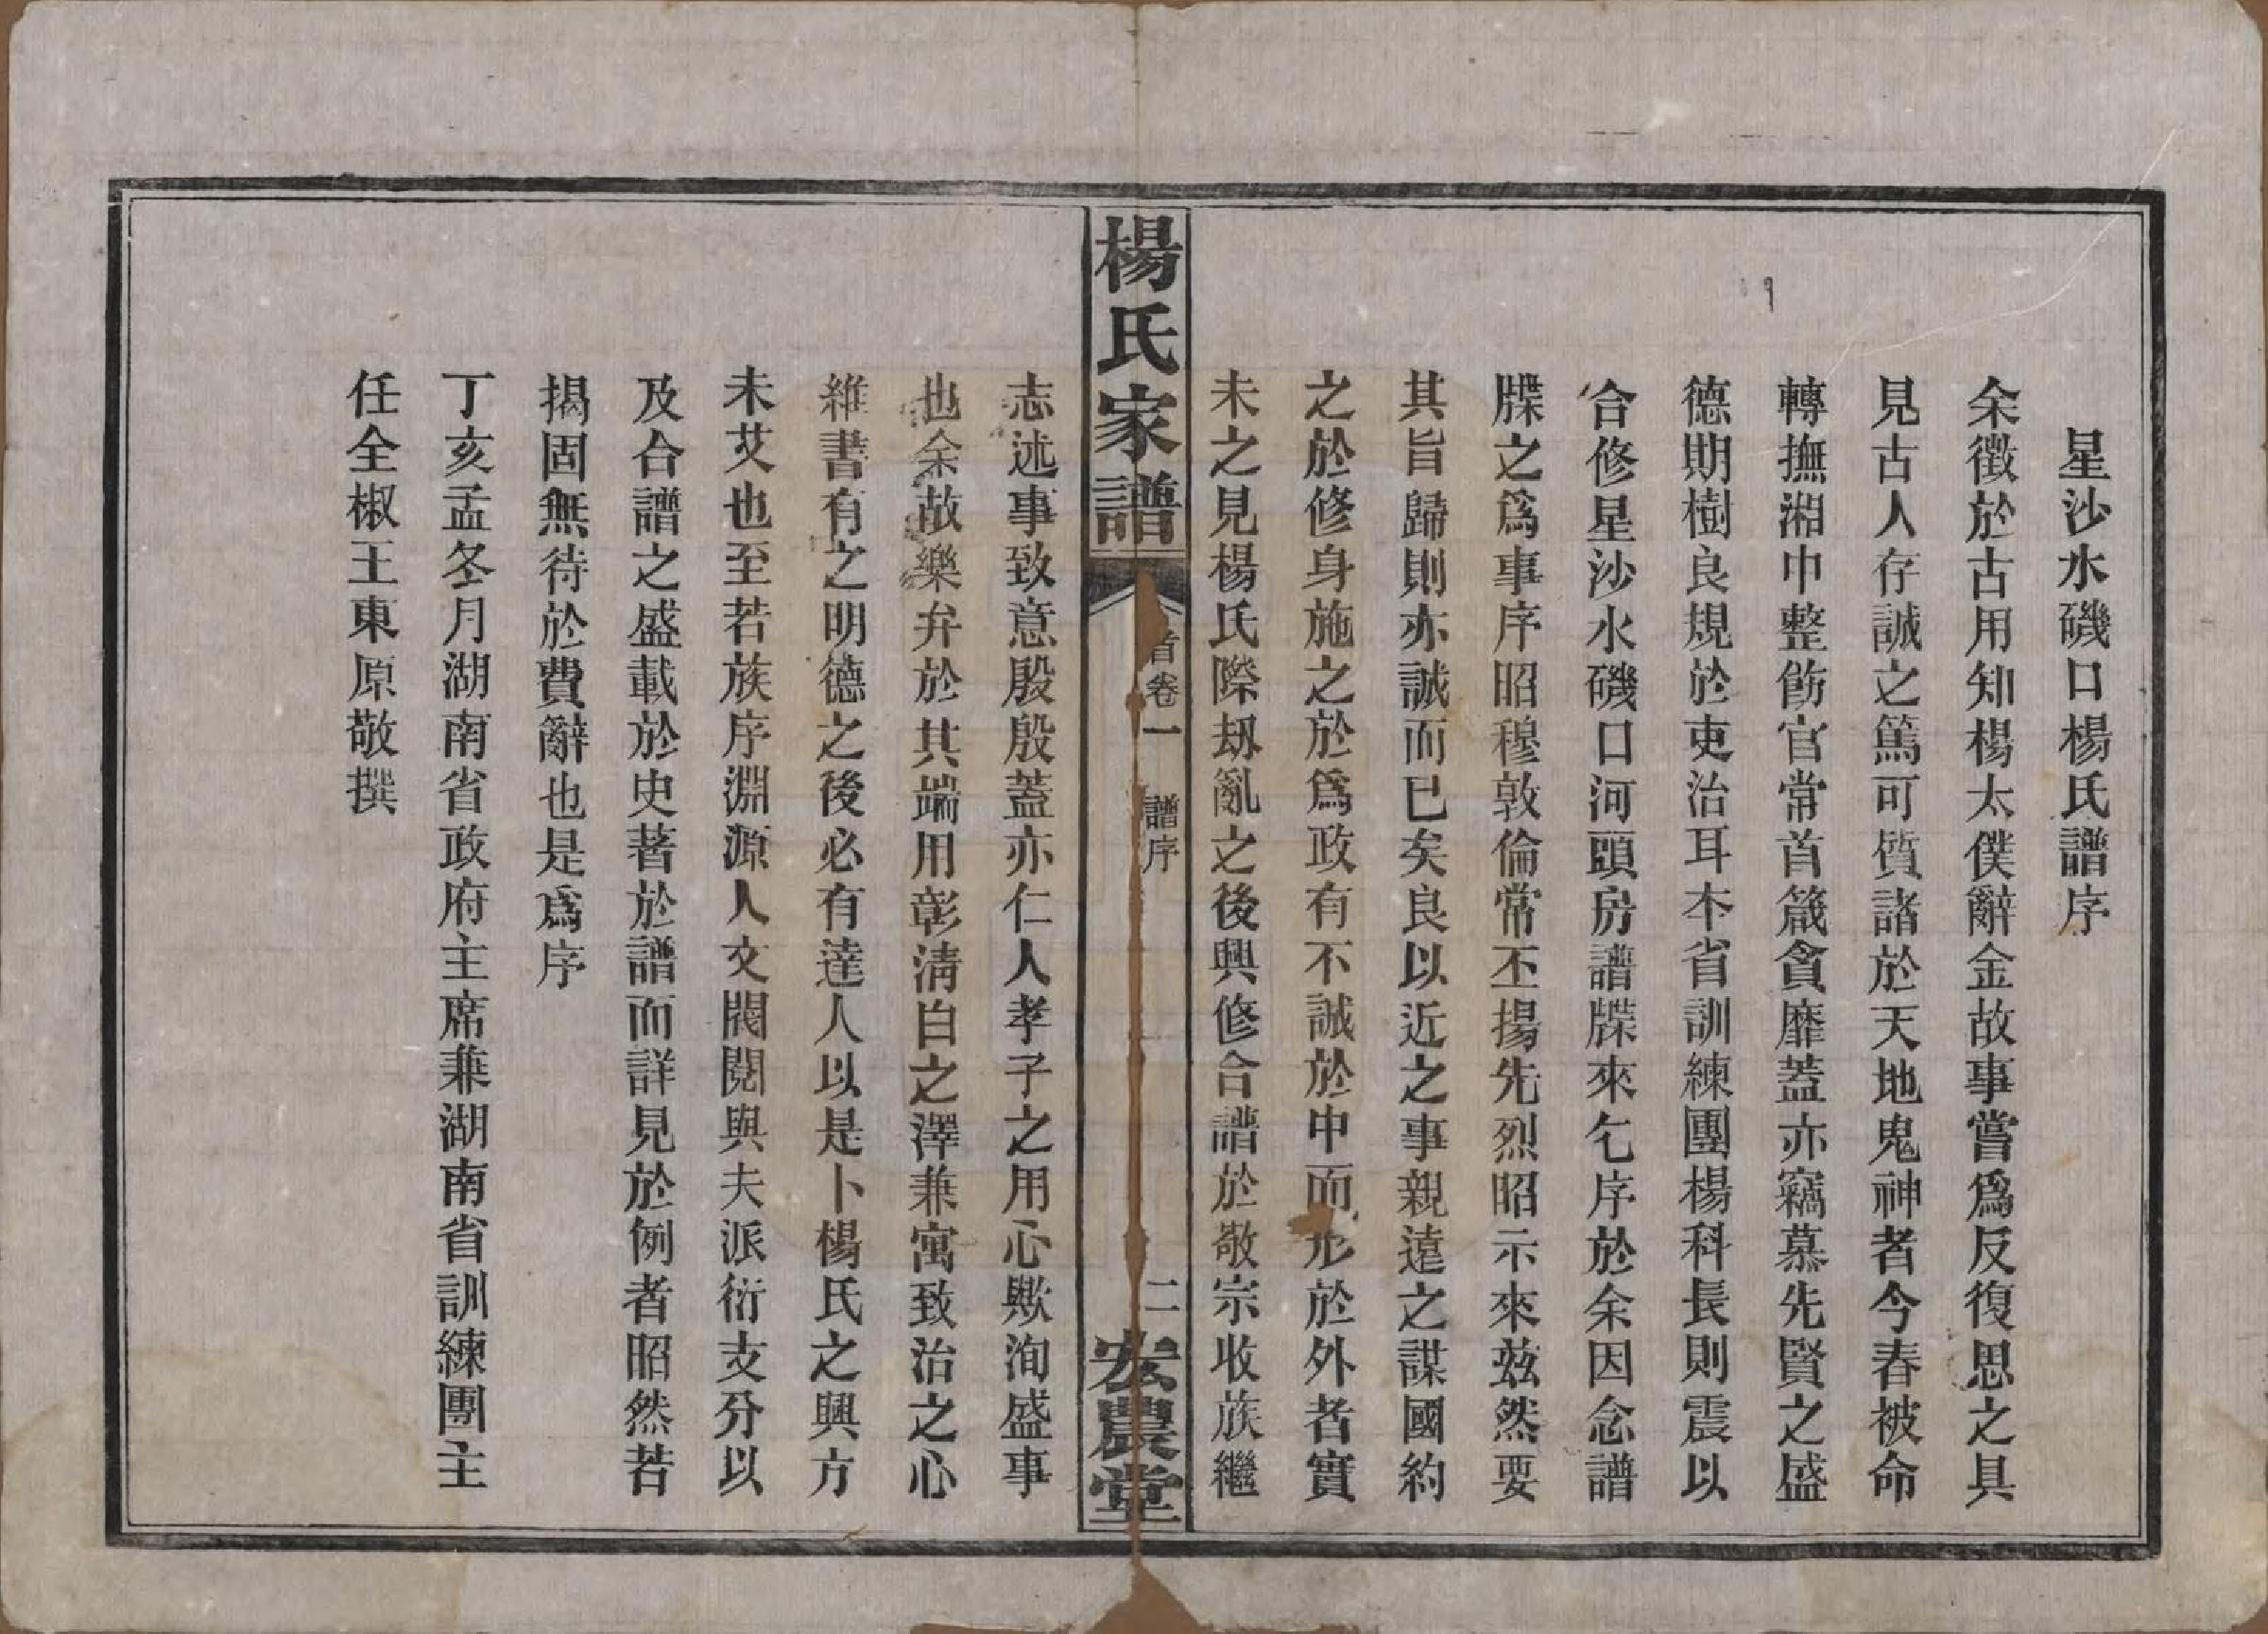 星沙水磯口楊氏譜序
余徵於古用知楊太僕辭金故事嘗爲反復思之具
見古人存誠之篤可質諸於天地鬼神者今春被命
轉撫湘中整飭官常首箴貪靡蓋亦竊慕先賢之盛
德期樹良規於吏治耳本省訓練團楊科長則震以
合修星沙水磯口河頭房譜牒來乞序於余因念譜
牒之爲事序昭穆敦倫常丕揚先烈昭示來茲然要
其旨歸則亦誠而已矣良以近之事親遠之謀國約
之於修身施之於爲政有不誠於中而形於外者實
未之見楊氏際刼亂之後興修合譜於敬宗收族繼
楊氏家譜
首卷一 譜序
二
宏農堂
志述事致意殷殷蓋亦仁人孝子之用心歟洵盛事
也余故樂弁於其端用彰淸白之澤兼寓致治之心
維書有之明德之後必有達人以是卜楊氏之興方
未艾也至若族序淵源人文閥閱與夫派衍支分以
及合譜之盛載於史著於譜而詳見於例者昭然若
揭固無待於費辭也是爲序
丁亥孟冬月湖南省政府主席兼湖南省訓練團主
任全椒王東原敬撰